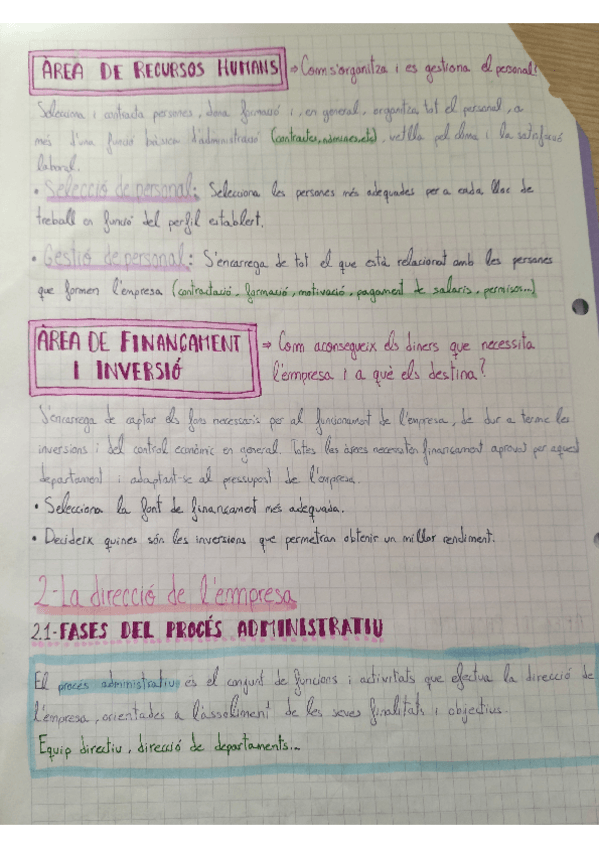 ÀREA DE RECURSOS HUMANS ⇒ Com s'organitza i es gestiona el personal?
Selecciona i contracta persones, dona formació i, en general, organitza tot el personal, a
més d'una funció bàsica d'administració (contractes, nòmines, etc), vetlla pel clima i la satisfacció
laboral.
• Selecció de personal: Selecciona les persones més adequades per a cada lloc de
treball en funció del perfil establert.
• Gestió de personal: S'encarrega de tot el que està relacionat amb les persones
que formen l'empresa (contractació, formació, motivació, pagament de salaris, permisos...)
ÀREA DE FINANÇAMENT
I INVERSIÓ
⇒ Com aconsegueix els diners que necessita
l'empresa i a què els destina?
S'encarrega de captar els fons necessaris per al funcionament de l'empresa, de dur a terme les
inversions i del control econòmic en general. Totes les àrees necessiten finançament aprovat per aquest
departament i adaptant-se al pressupost de l'empresa.
• Selecciona la font de finançament més adequada.
• Decideix quines són les inversions que permetran obtenir un millor rendiment.
2-La direcció de l'empresa
2.1-FASES DEL PROCÉS ADMINISTRATIU
El procés administratiu és el conjunt de funcions i activitats que efectua la direcció de
l'empresa, orientades a l'assoliment de les seves finalitats i objectius.
Equip directiu, direcció de departaments...